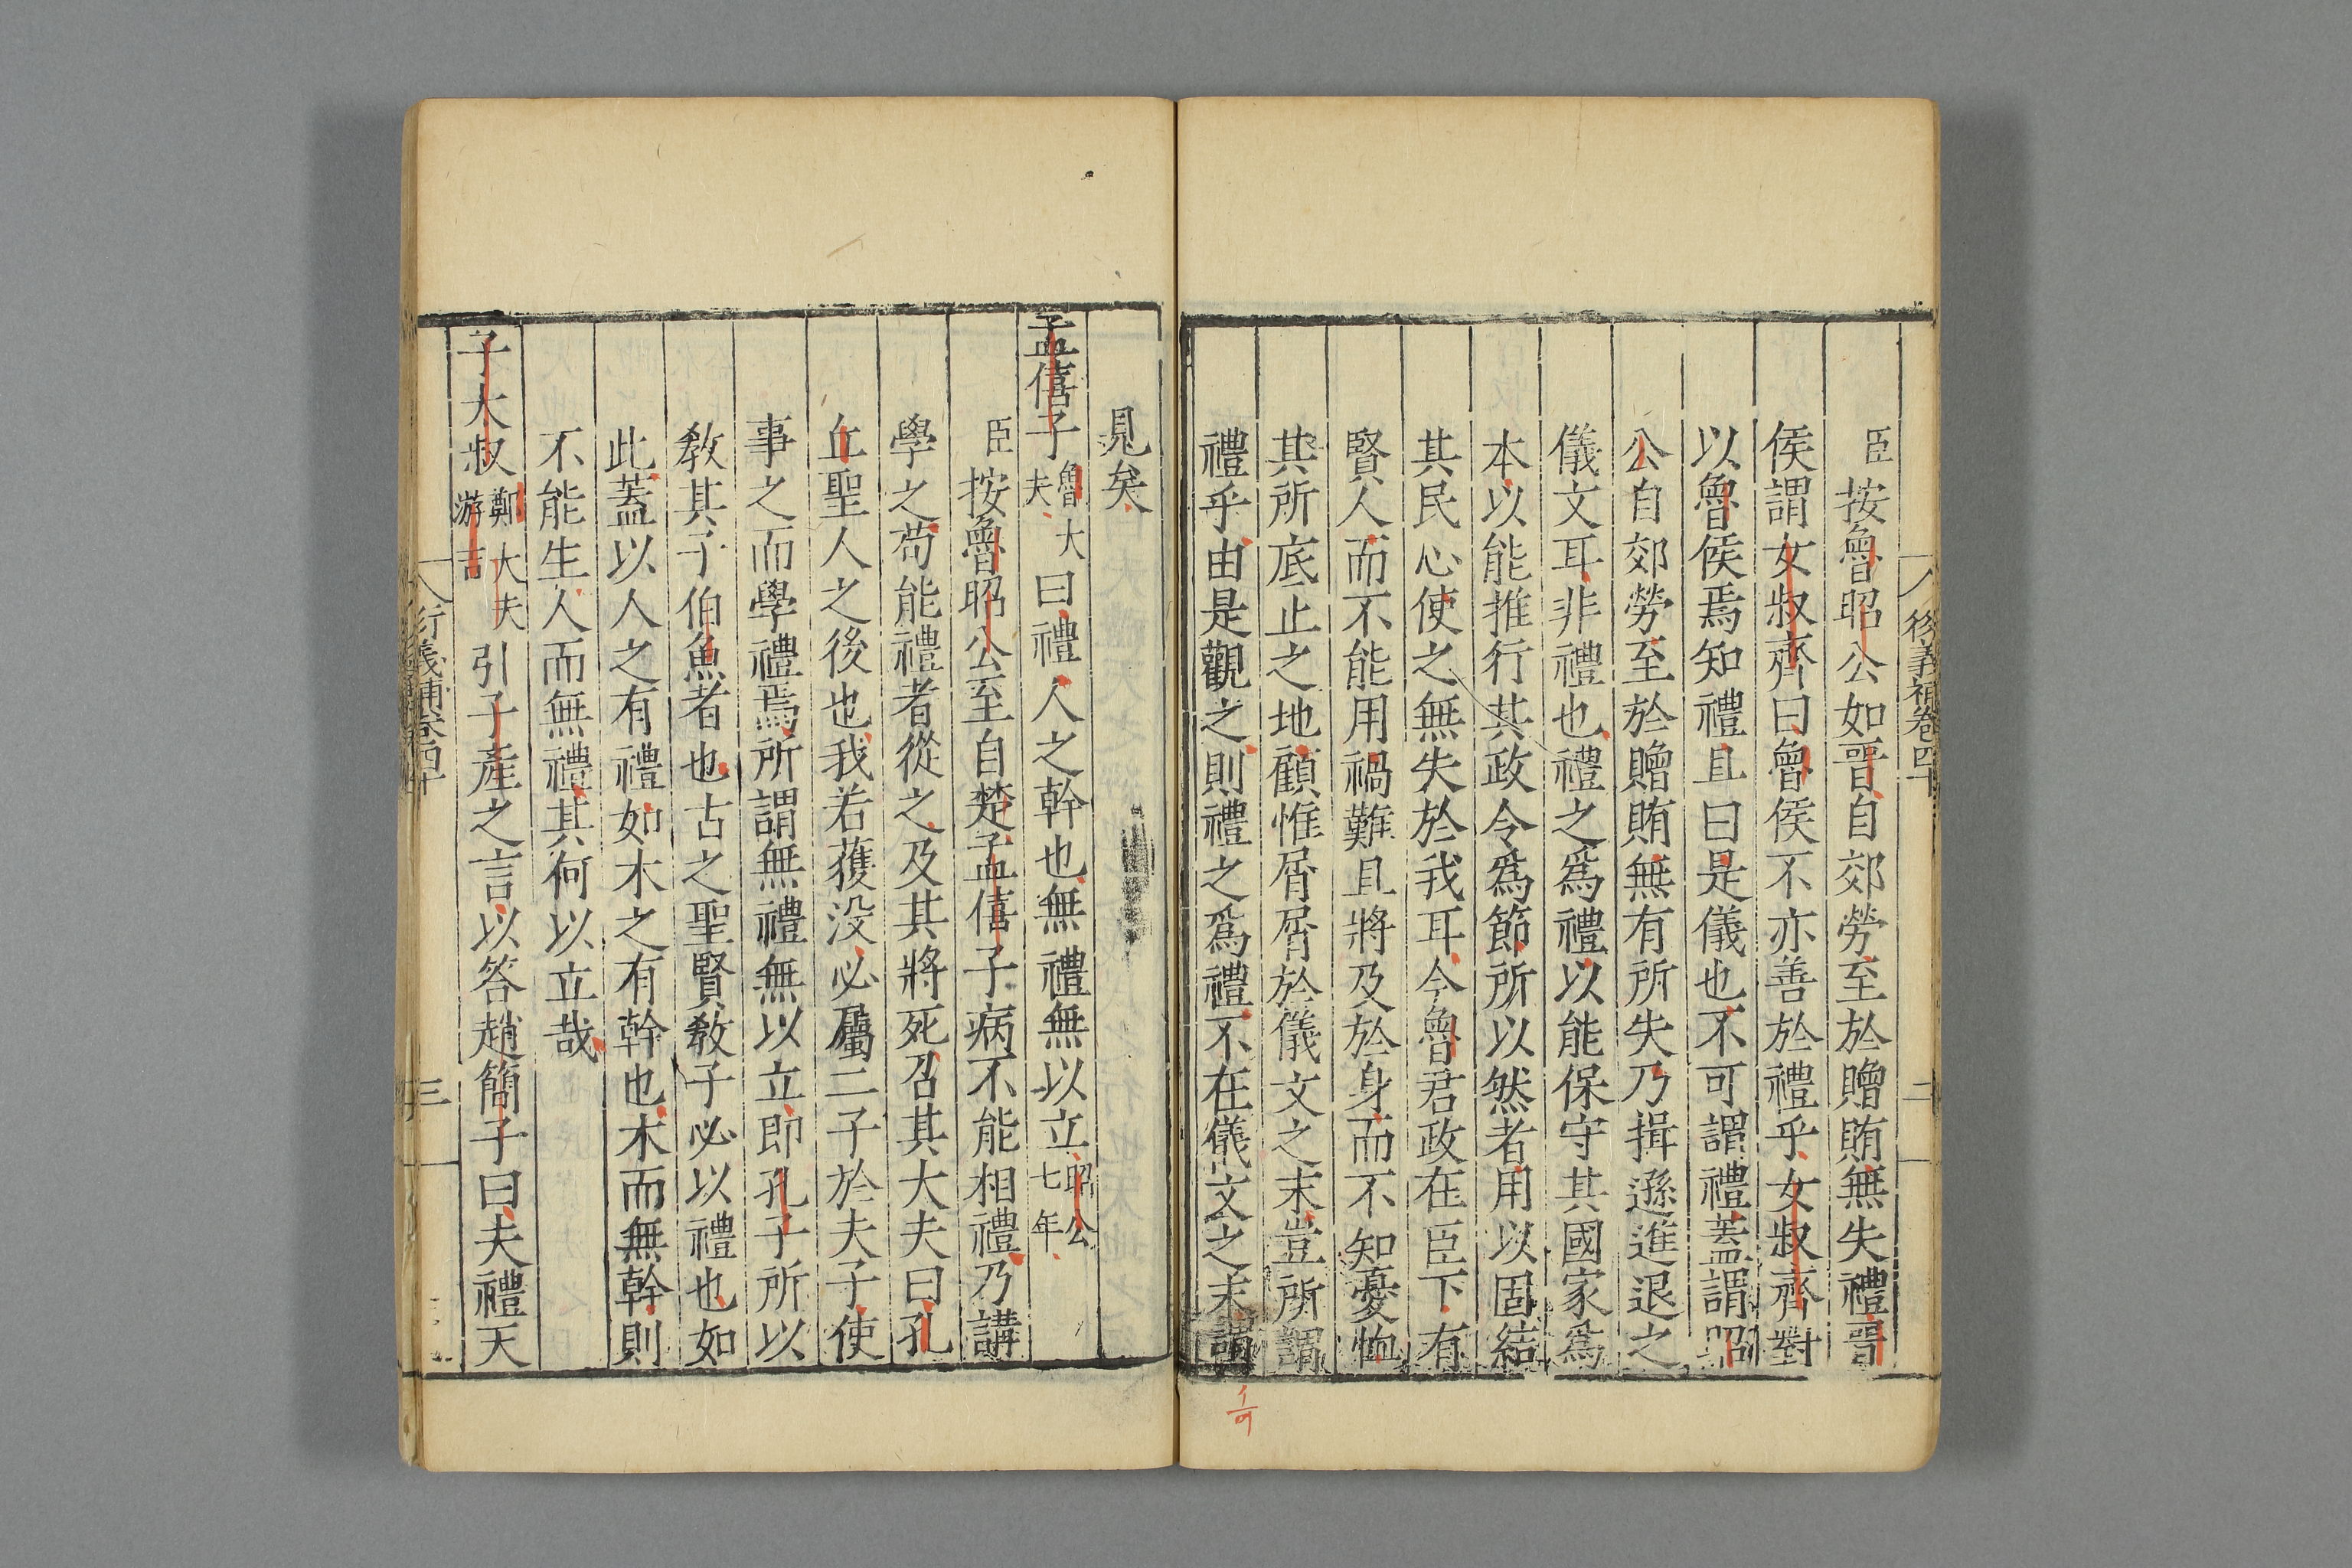 後義補卷四十
二
臣按魯昭公如晉自郊勞至於贈賄無失禮晉
侯謂女叔齊曰魯侯不亦善於禮乎女叔齊對
以魯侯焉知禮且曰是儀也不可謂禮蓋謂昭
公自郊勞至於贈賄無有所失乃揖遜進退之
儀文耳非禮也禮之爲禮以能保守其國家爲
本以能推行其政令爲節所以然者用以固結
其民心使之無失於我耳今魯君政在臣下有
賢人而不能用禍難且將及於身而不知憂恤
其所底止之地顧惟屑屑於儀文之末豈所謂
禮乎由是觀之則禮之爲禮不在儀文之末謂
見矣
孟僖子魯大夫曰禮人之幹也無禮無以立昭公七年
臣按魯昭公至自楚孟僖子病不能相禮乃講
學之苟能禮者從之及其將死召其大夫曰孔
丘聖人之後也我若獲没必屬二子於夫子使
事之而學禮焉所謂無禮無以立即孔子所以
教其子伯魚者也古之聖賢教子必以禮也如
此蓋以人之有禮如木之有幹也木而無幹則
不能生人而無禮其何以立哉
子大叔鄭大夫游吉引子產之言以答趙簡子曰夫禮天
衍義補卷四十
三